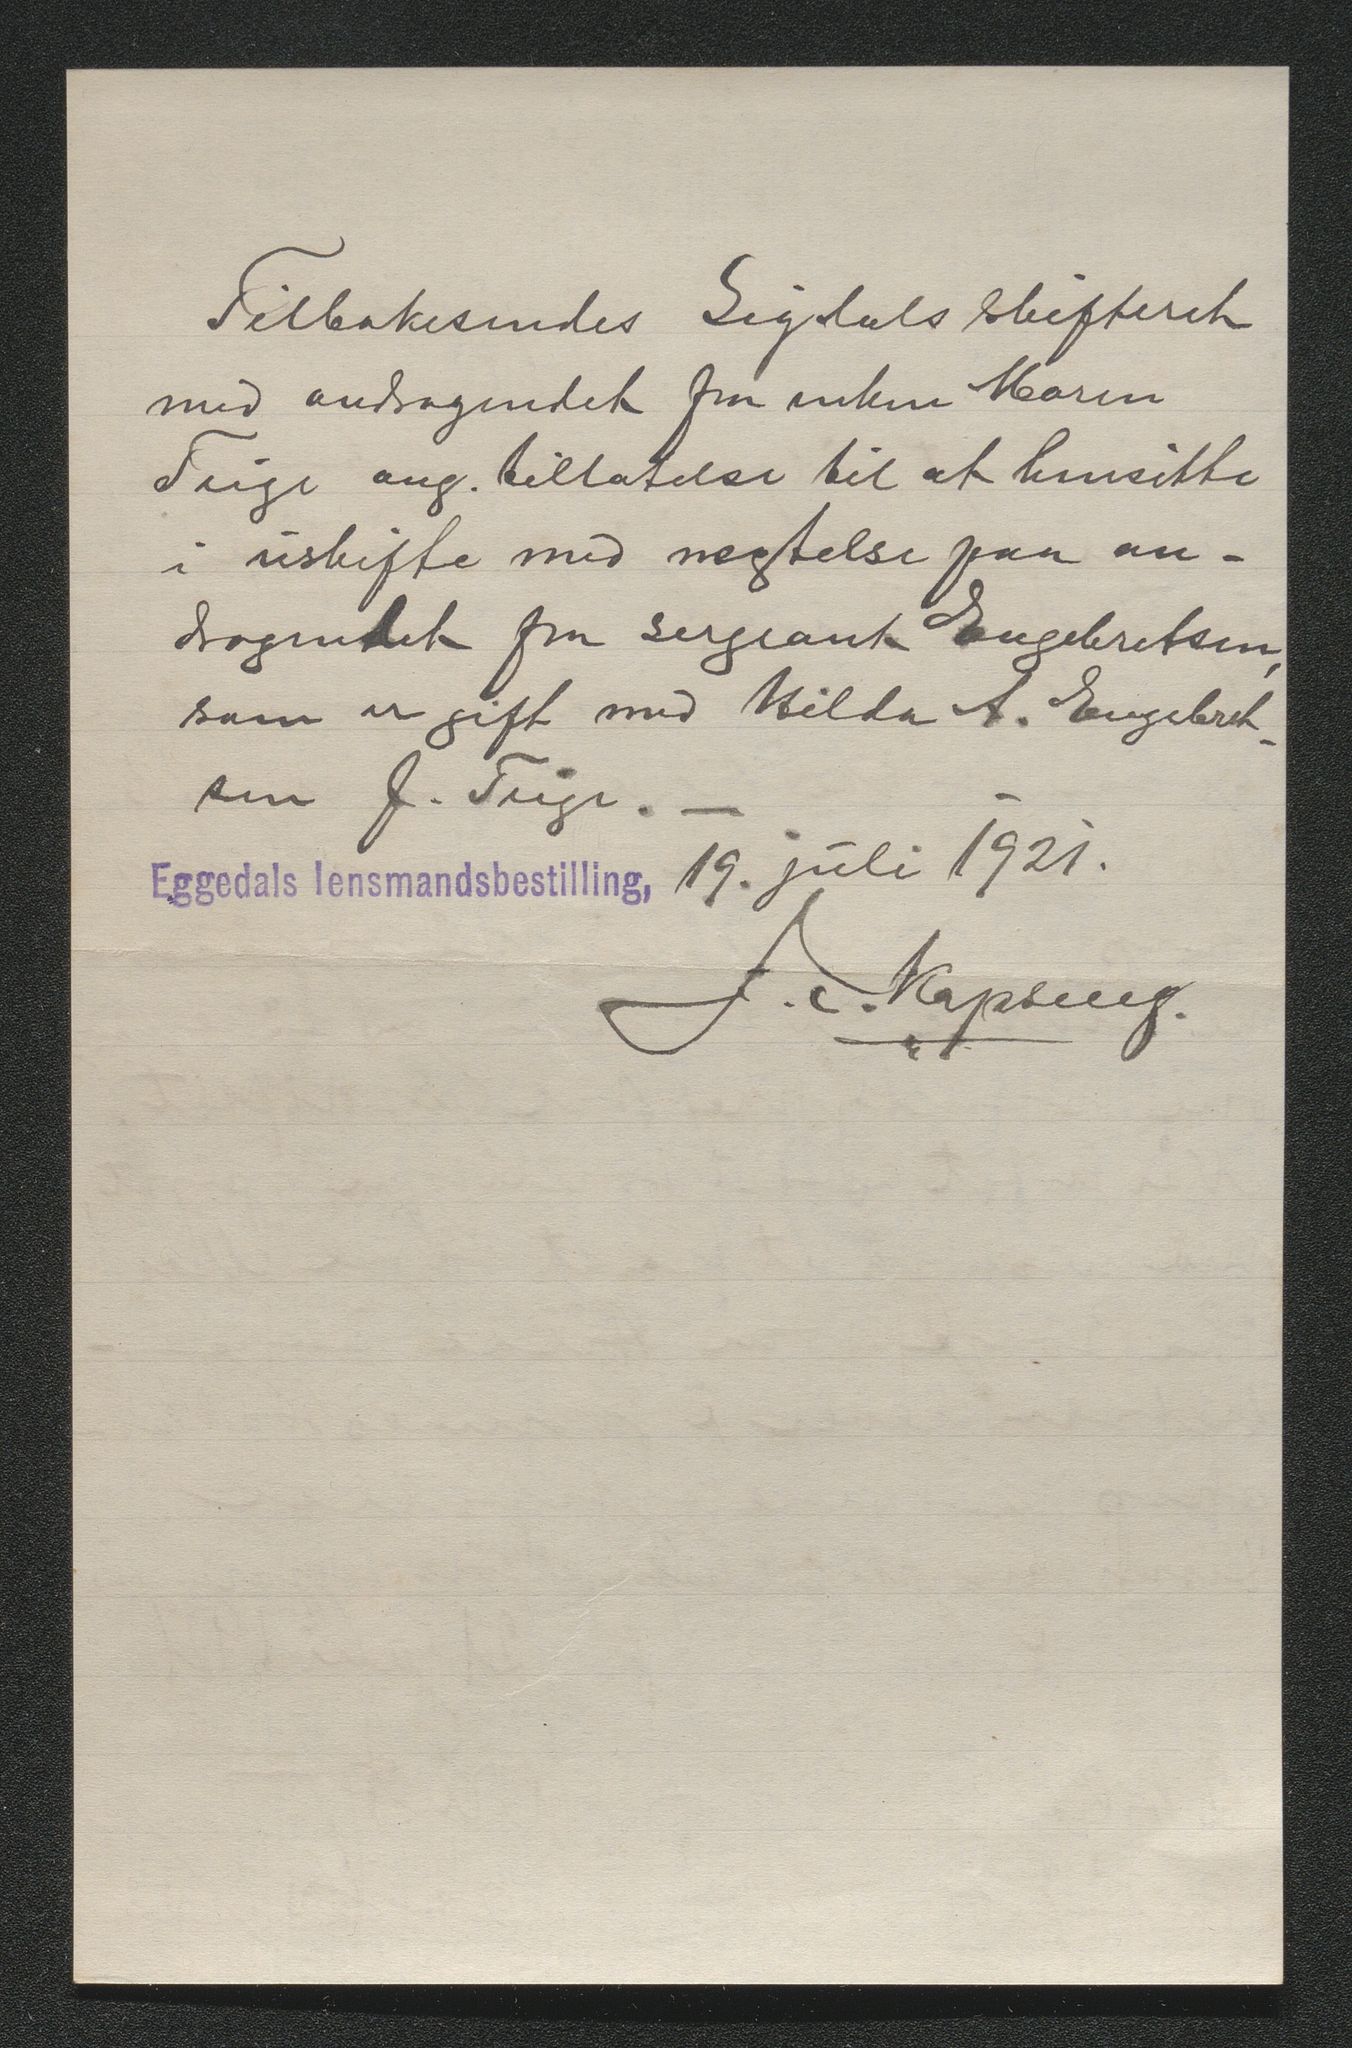 Tilbakesendes Sigdals skifteret
med andragendet fra enken Maren
Teige ang. tillatelse til at hensitte
i uskifte med negtelse paa an-
dragendet fra sergeant Engebretsen,
som er gift med Hilda A. Engebret-
sen f. Teige. —
Eggedals lensmandsbestilling, 19. juli 1921.